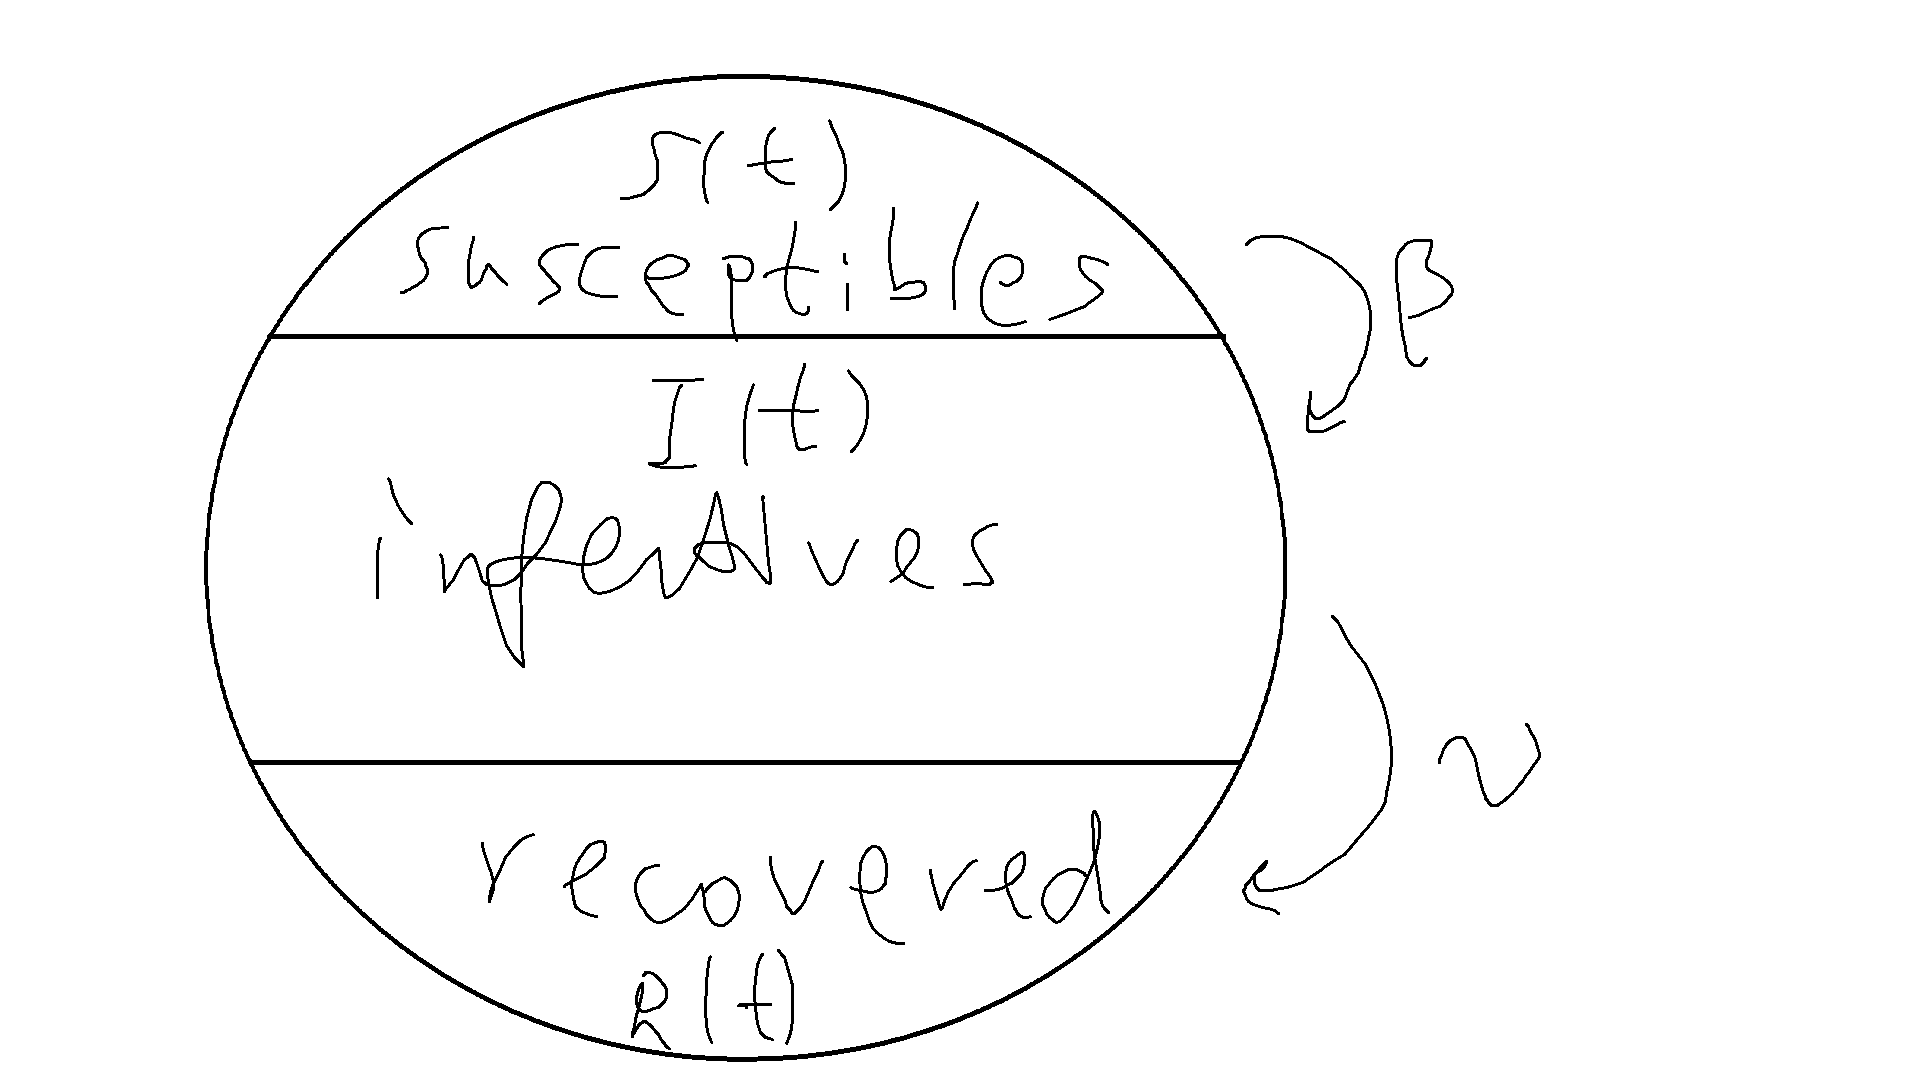 S(t)
susceptibles
β
I(t)
infectives
ν
recovered
R(t)